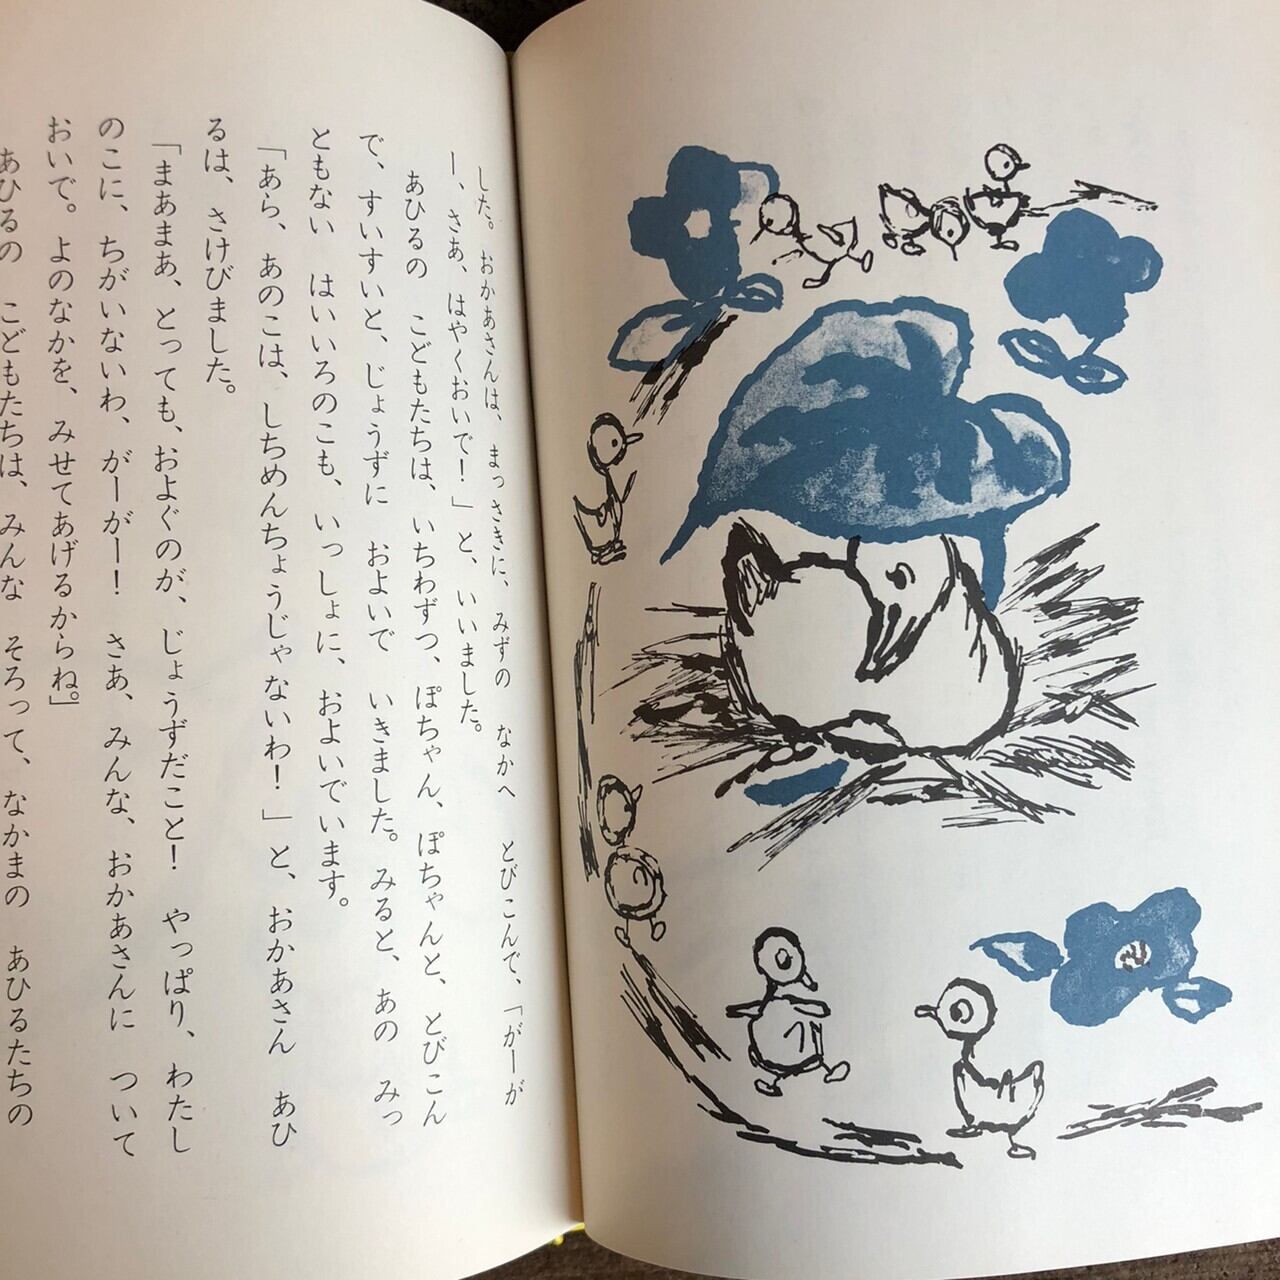 した。おかあさんは、まっさきに、みずの なかへ とびこんで、「がーが
ー、さあ、はやくおいで！」と、いいました。
あひるの こどもたちは、いちわずつ、ぽちゃん、ぽちゃんと、とびこん
で、すいすいと、じょうずに およいで いきました。みると、あの みっ
ともない はいいろのこも、いっしょに、およいでいます。
「あら、あのこは、しちめんちょうじゃないわ！」と、おかあさん あひ
るは、さけびました。
「まあまあ、とっても、およぐのが、じょうずだこと！ やっぱり、わたし
のこに、ちがいないわ、がーがー！ さあ、みんな、おかあさんに ついて
おいで。よのなかを、みせてあげるからね。」
あひるの こどもたちは、みんな そろって、なかまの あひるたちの